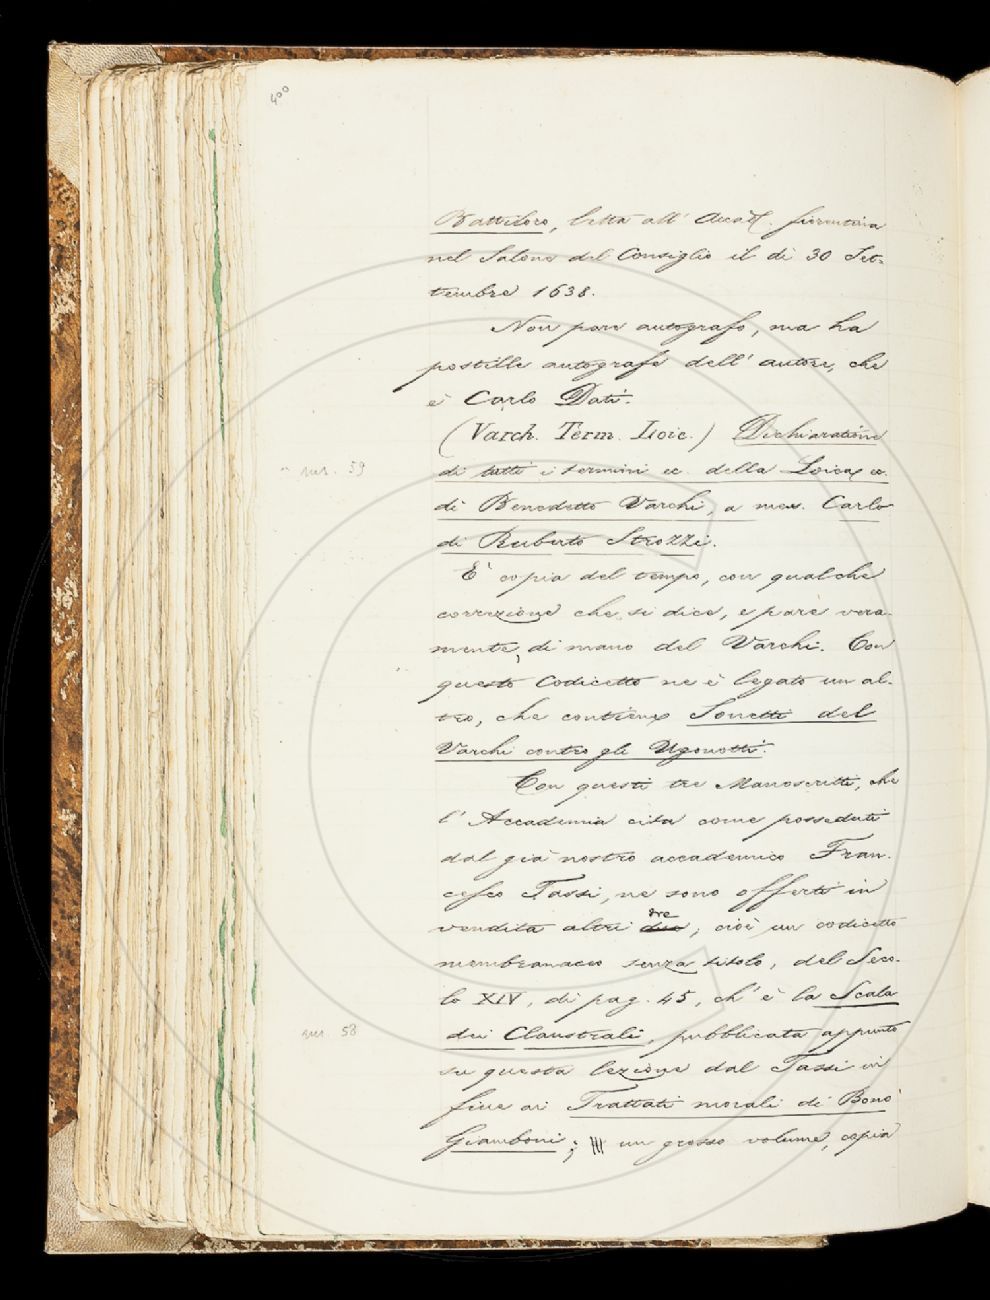 400
Battiloro, letta all' Accad. fiorentina
nel Salone del Consiglio il dì 30 Set-
tembre 1638.
Non pare autografo, ma ha
postille autografe dell' autore, che
è Carlo Dati.
(Varch. Term. Loic.) Dichiaratione
di tutti i termini ec. della Loica, ec.
di Benedetto Varchi, a mes. Carlo
di Ruberto Strozzi.
ms. 59
È copia del tempo, con qualche
correzione che si dice, e pare vera-
mente, di mano del Varchi. Con
questo Codicetto ne è legato un al-
tro, che contiene Sonetti del
Varchi contro gli Ugonotti.
Con questi tre Manoscritti, che
l' Accademia cita come posseduti
dal già nostro accademico Fran-
cesco Tassi, ne sono offerti in
vendita altri due tre; cioè un codicetto
membranaceo senza titolo, del Seco-
lo XIV, di pag. 45, ch' è la Scala
dei Claustrali, pubblicata appunto
ms. 58
su questa lezione dal Tassi in
fine ai Trattati morali di Bono
Giamboni; un grosso volume, copia